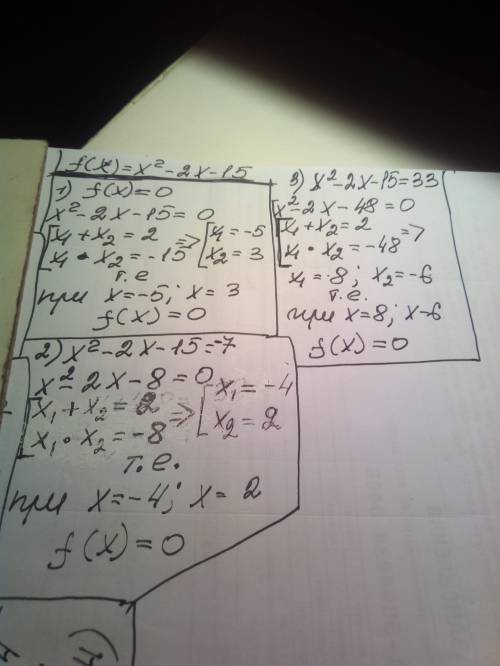 f(x)=x²-2x-15
1) f(x)=0
x²-2x-15=0
x₁+x₂=2 => x₁=-5
x₁•x₂=-15 x₂=3
т.е
при x=-5; x=3
f(x)=0
2) x²-2x-15=-7
x²-2x-8=0
x₁+x₂=2 => x₁=-4
x₁•x₂=-8 x₂=2
т.е.
при x=-4; x=2
f(x)=0
3) x²-2x-15=33
x²-2x-48=0
x₁+x₂=2 =>
x₁•x₂=-48
x₁=8; x₂=-6
т.е.
при x=8; x-6
f(x)=0